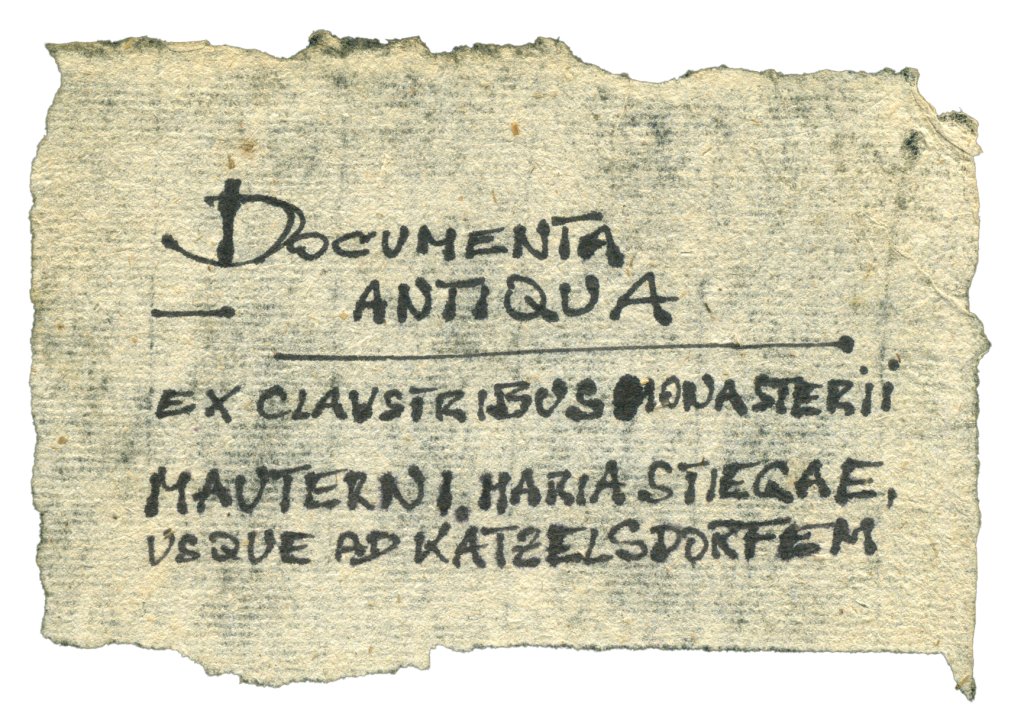 DOCUMENTA
ANTIQUA
EX CLAVSTRIBUS MONASTERII
MAUTERNI, MARIA STIEGAE,
USQUE AD KATZELSDORFEM